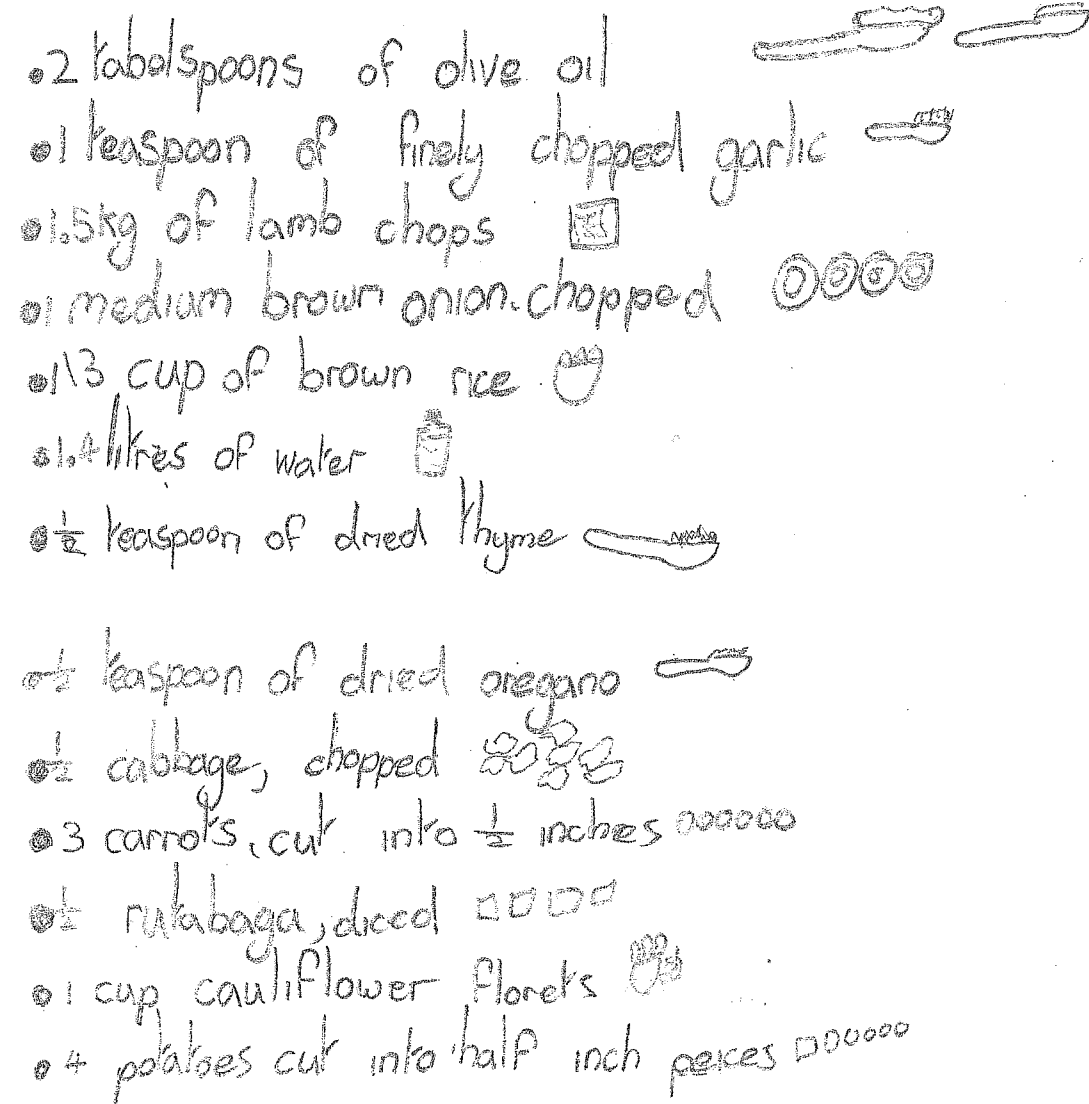 •2 tabolspoons of olive oil
•1 teaspoon of finely chopped garlic
•1.5kg of lamb chops
•1 medium brown onion.chopped
•1\3 cup of brown rice
•1.4 litres of water
•½ teaspoon of dried thyme
•½ teaspoon of dried oregano
•½ cabbage, chopped
•3 carrots, cut into ½ inches
•½ rutabaga, diced
•1 cup cauliflower florets
•4 potatoes cut into half inch peices